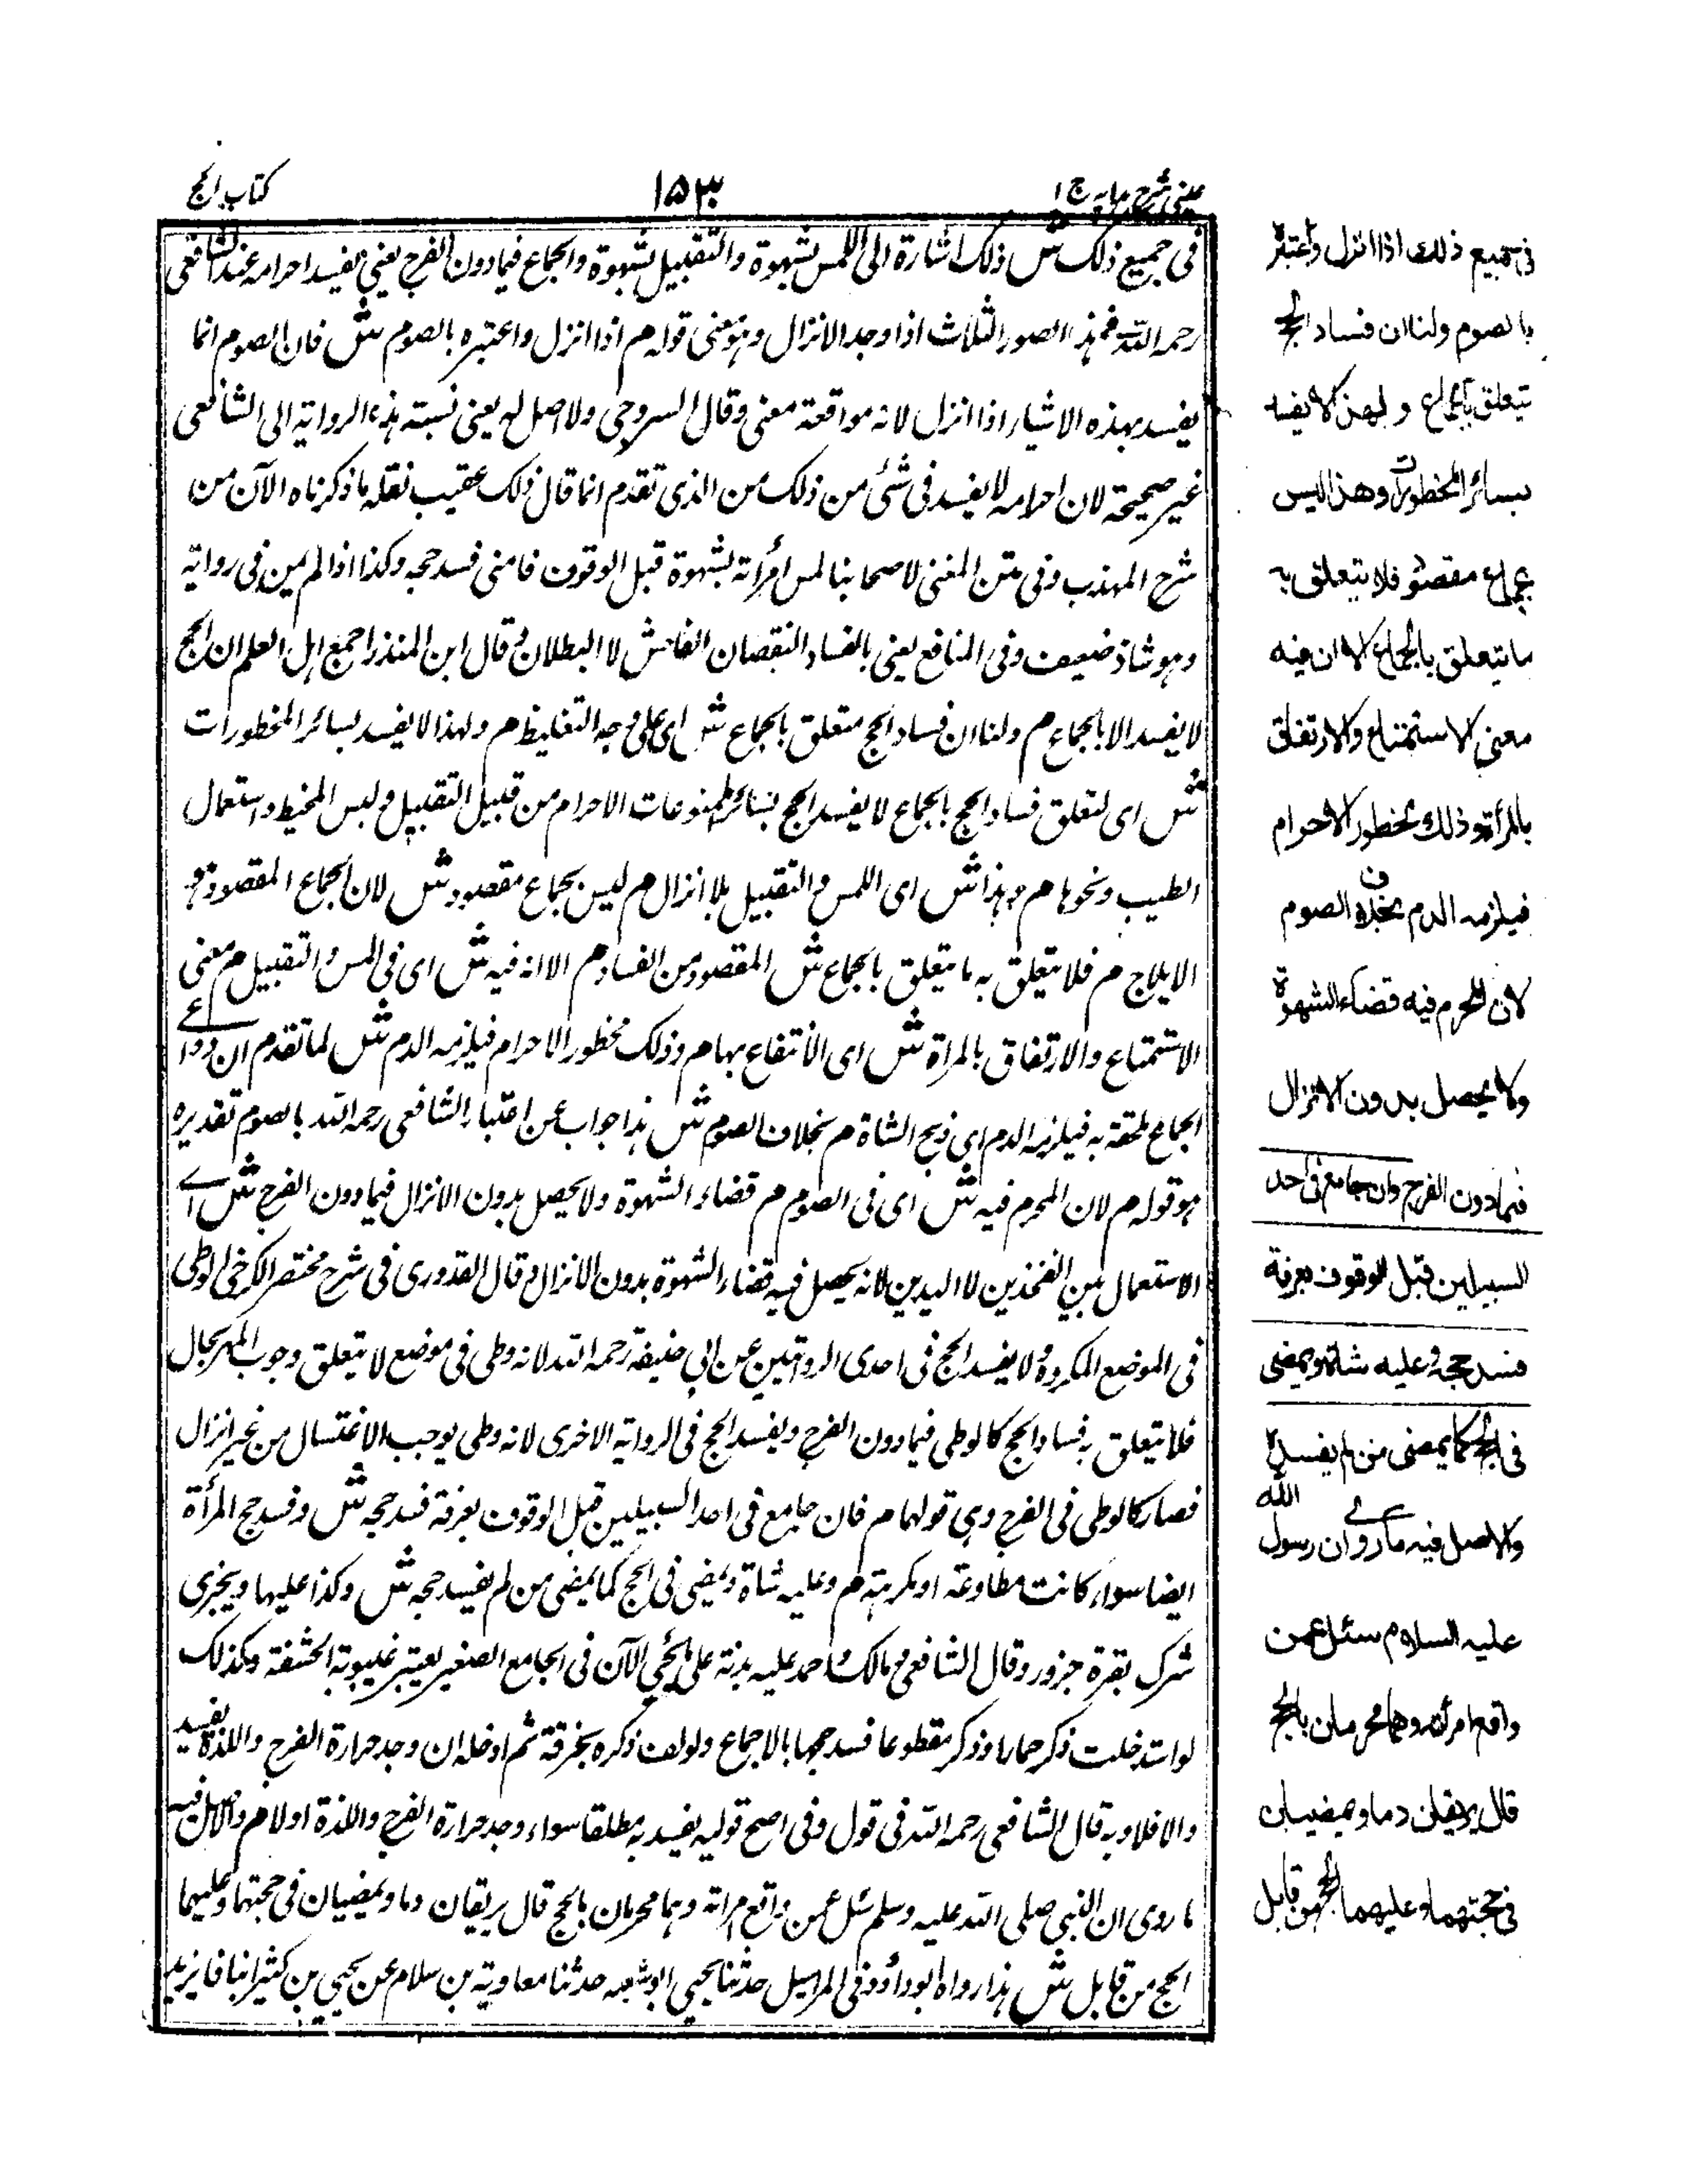 عینی شرح ہدایہ ج ۱
۱۵۳
کتاب الحج
فی جمیع ذلک ش ذلک اشارة الی اللمس بشہوة والتقبیل بشہوة والجماع فیما دون الفرج یعنی یفسد احرامہ عند الشافعی
رحمہ اللہ فی ہذہ الصور الثلاث اذا وجد الانزال وہو معنی قولہ م اذا انزل واعتبرہ بالصوم ش فان الصوم انما
یفسد بہذہ الاشیاء اذا انزل لانہ مواقعة معنی وقال السروجی ولا اصل لہ یعنی نسبتہ ہذہ الروایة الی الشافعی
غیر صحیحة لان احرامہ لا یفسد فی شئ من ذلک من الذی تقدم انما قال ذلک عقیب نقلہ ما ذکرناہ الآن من
شرح المہذب وفی متن المغنی لاصحابنا لمس امرأتہ بشہوة قبل الوقوف فامنی فسد حجہ وکذا اذا لم یمن فی روایة
وہو شاذ ضعیف وفی المنافع یعنی بالفساد النقصان الفاحش لا البطلان وقال ابن المنذر اجمع اہل العلم ان الحج
لا یفسد الا بالجماع م ولنا ان فساد الحج متعلق بالجماع ش ای علی وجہ التغلیظ م ولہذا لا یفسد بسائر المحظورات
ش ای لتعلق فساد الحج بالجماع لا یفسد الحج بسائر ممنوعات الاحرام من قبیل التقبیل ولبس المخیط واستعمال
الطیب ونحوہا م وہذا ش ای اللمس والتقبیل بلا انزال م لیس بجماع مقصود ش لان الجماع المقصود ہو
الایلاج م فلا یتعلق بہ ما یتعلق بالجماع ش المقصود من الفساد م الا انہ فیہ ش ای فی المس والتقبیل م معنی
الاستمتاع والارتفاق بالمرأة ش ای الانتفاع بہا م وذلک محظور الاحرام فیلزمہ الدم ش لما تقدم ان دواعی
الجماع ملحقة بہ فیلزمہ الدم ای ذبح الشاة م بخلاف الصوم ش ہذا جواب عن اعتبار الشافعی رحمہ اللہ بالصوم تقدیرہ
ہو قولہ م لان المحرم فیہ ش ای فی الصوم م قضاء الشہوة ولا یحصل بدون الانزال فیما دون الفرج ش ای
الاستعمال بین الفخذین لا الیدین لانہ یحصل فیہ قضاء الشہوة بدون الانزال وقال القدوری فی شرح مختصر الکرخی الوطی
فی الموضع المکروہ لا یفسد الحج فی احدی الروایتین عن ابی حنیفة رحمہ اللہ لانہ وطی فی موضع لا یتعلق وجوب المہر بحال
فلا یتعلق بہ فساد الحج کالوطی فیما دون الفرج ویفسد الحج فی الروایة الاخری لانہ وطی یوجب الاغتسال من غیر انزال
فصار کالوطی فی الفرج وہی قولہما م فان جامع فی احد السبیلین قبل الوقوف بعرفة فسد حجہ ش وفسد حج المرأة
ایضا سواء کانت مطاوعة او مکرہة م وعلیہ شاة ویمضی فی الحج کما یمضی من لم یفسد حجہ ش وکذا علیہا ویجزی
شرک بقرة جزور وقال الشافعی ومالک واحمد علیہ بدنة علی ما یجئ الآن فی الجامع الصغیر یعتبر غیبوبة الحشفة وکذلک
لو استدخلت ذکر حمار او ذکر مقطوعا فسد حجہا بالاجماع ولو لف ذکرہ بخرقة ثم ادخلہ ان وجد حرارة الفرج واللذة یفسد
والا فلا وبہ قال الشافعی رحمہ اللہ فی قول وفی اصح قولیہ یفسد بہ مطلقا سواء وجد حرارة الفرج واللذة او لا م والاصل فیہ
ما روی ان النبی صلی اللہ علیہ وسلم سئل عمن واقع امرأتہ وہما محرمان بالحج قال یریقان دما ویمضیان فی حجتہما وعلیہما
الحج من قابل ش ہذا رواہ ابو داؤد فی المراسیل حدثنا یحیی ابو شعبہ حدثنا معاویة بن سلام عن یحیی بن کثیر انبأنا یزید
فی جمیع ذلك اذا انزل واعتبرہ
بالصوم ولنا ان فساد الحج
یتعلق بالجماع ولهذا لا یفسد
بسائر المحظورات وهذا لیس
بجماع مقصود فلا یتعلق به
ما یتعلق بالجماع الا ان فیه
معنی الاستمتاع والارتفاق
بالمرأة وذلك محظور الاحرام
فیلزمه الدم بخلاف الصوم
لان المحرم فیه قضاء الشهوة
ولا یحصل بدون الانزال
فیما دون الفرج وان جامع فی احد
السبیلین قبل الوقوف بعرفة
فسد حجه وعلیه شاة ویمضی
فی الحج کما یمضی من لم یفسدہ
والاصل فیه ما روی ان رسول الله
علیه السلام سئل عمن
واقع امرأته وهما محرمان بالحج
قال یریقان دما ویمضیان
فی حجتهما وعلیهما الحج من قابل